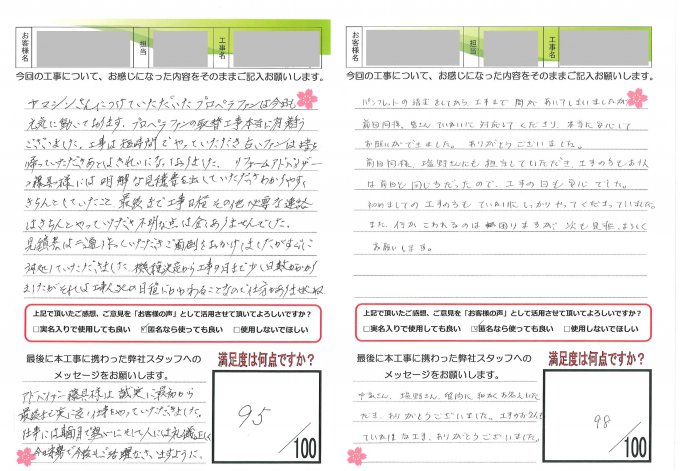 お客様名
担当
工事名
今回の工事について、お感じになった内容をそのままご記入お願いします。
ヤマシンさんにつけていただいたプロペラファンは今も
元気に動いております。プロペラファンの取替工事本当に有難う
ございました。工事は短時間でやっていただき古いファンは持ち
帰っていただきあとはきれいになっておりました。リフォームアドバイザー
様には明解な見積書を出していただきわかりやすく
きちんとしていたこと 最後まで工事日程その他必要な連絡
はきちんとやっていただき不明な点は全くありませんでした。
見積書は二通りだしていただきご面倒をおかけしましたがすぐに
対処していただきました。機種決定から工事の日まで少し日数がかかり
ましたがそれは工事人の日程にかかわることなので仕方がありませんね
上記で頂いたご感想、ご意見を「お客様の声」として活用させて頂いてよろしいですか？
□実名入りで使用しても良い ☑匿名なら使っても良い □使用しないでほしい
最後に本工事に携わった弊社スタッフへの
メッセージをお願いします。
満足度は何点ですか？
様は誠実に最初から
最後まで実に良い仕事をやっていただきました。
仕事には 人には礼儀正しく
今の姿勢で今後もご活躍なさいますように。
95
/100
お客様名
担当
工事名
今回の工事について、お感じになった内容をそのままご記入お願いします。
パンフレットの請求をしてから工事まで間があいてしまいましたが
前田同様、皆さんていねいに対応してくださり、本当に安心して
お願いができました。ありがとうございました。
前回同様、塩野さんにも担当していただき、工事の方もお1人
は前回と同じ方だったので、工事の日も安心でした。
初めましての工事の方もていねいにしっかりやってくださっていました。
また、何かこわれるのは困りますが、次も是非、よろしく
お願いします。
上記で頂いたご感想、ご意見を「お客様の声」として活用させて頂いてよろしいですか？
□実名入りで使用しても良い ☑匿名なら使っても良い □使用しないでほしい
最後に本工事に携わった弊社スタッフへの
メッセージをお願いします。
満足度は何点ですか？
塩野さん、
ただき、ありがとうございました。工事のお2人も
ていねいな工事、ありがとうございました。
98
/100